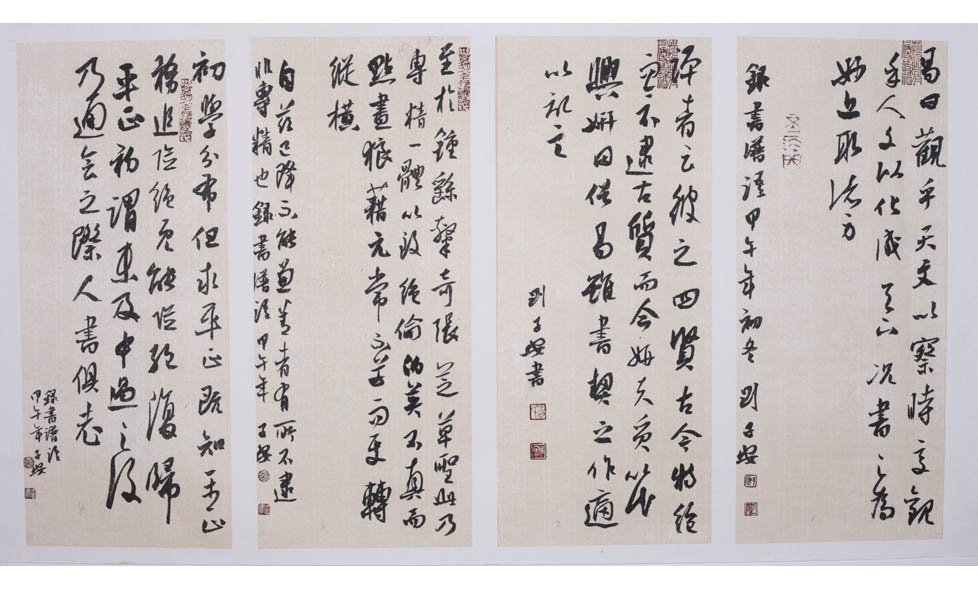 易曰觀乎天文以察時變觀
乎人文以化成天下況書之為
妙近取諸身
錄書譜語甲午年初冬劉子
評者云彼之四賢古今特絕
而今不逮古質而今妍夫質以代
興妍因俗易雖書契之作適
以記言
劉子 書
至於鍾繇隸奇張芝草聖此乃
專精一體以致絕倫伯英不真而
點畫狼藉元常不草而使轉
縱橫
自茲已降不能兼善者有所不逮
非專精也錄書譜語甲午年子
初學分布但求平正既知平正
務追險絕既能險絕復歸
平正初謂未及中過之後
乃通會之際人書俱老
錄書譜語
甲午年子